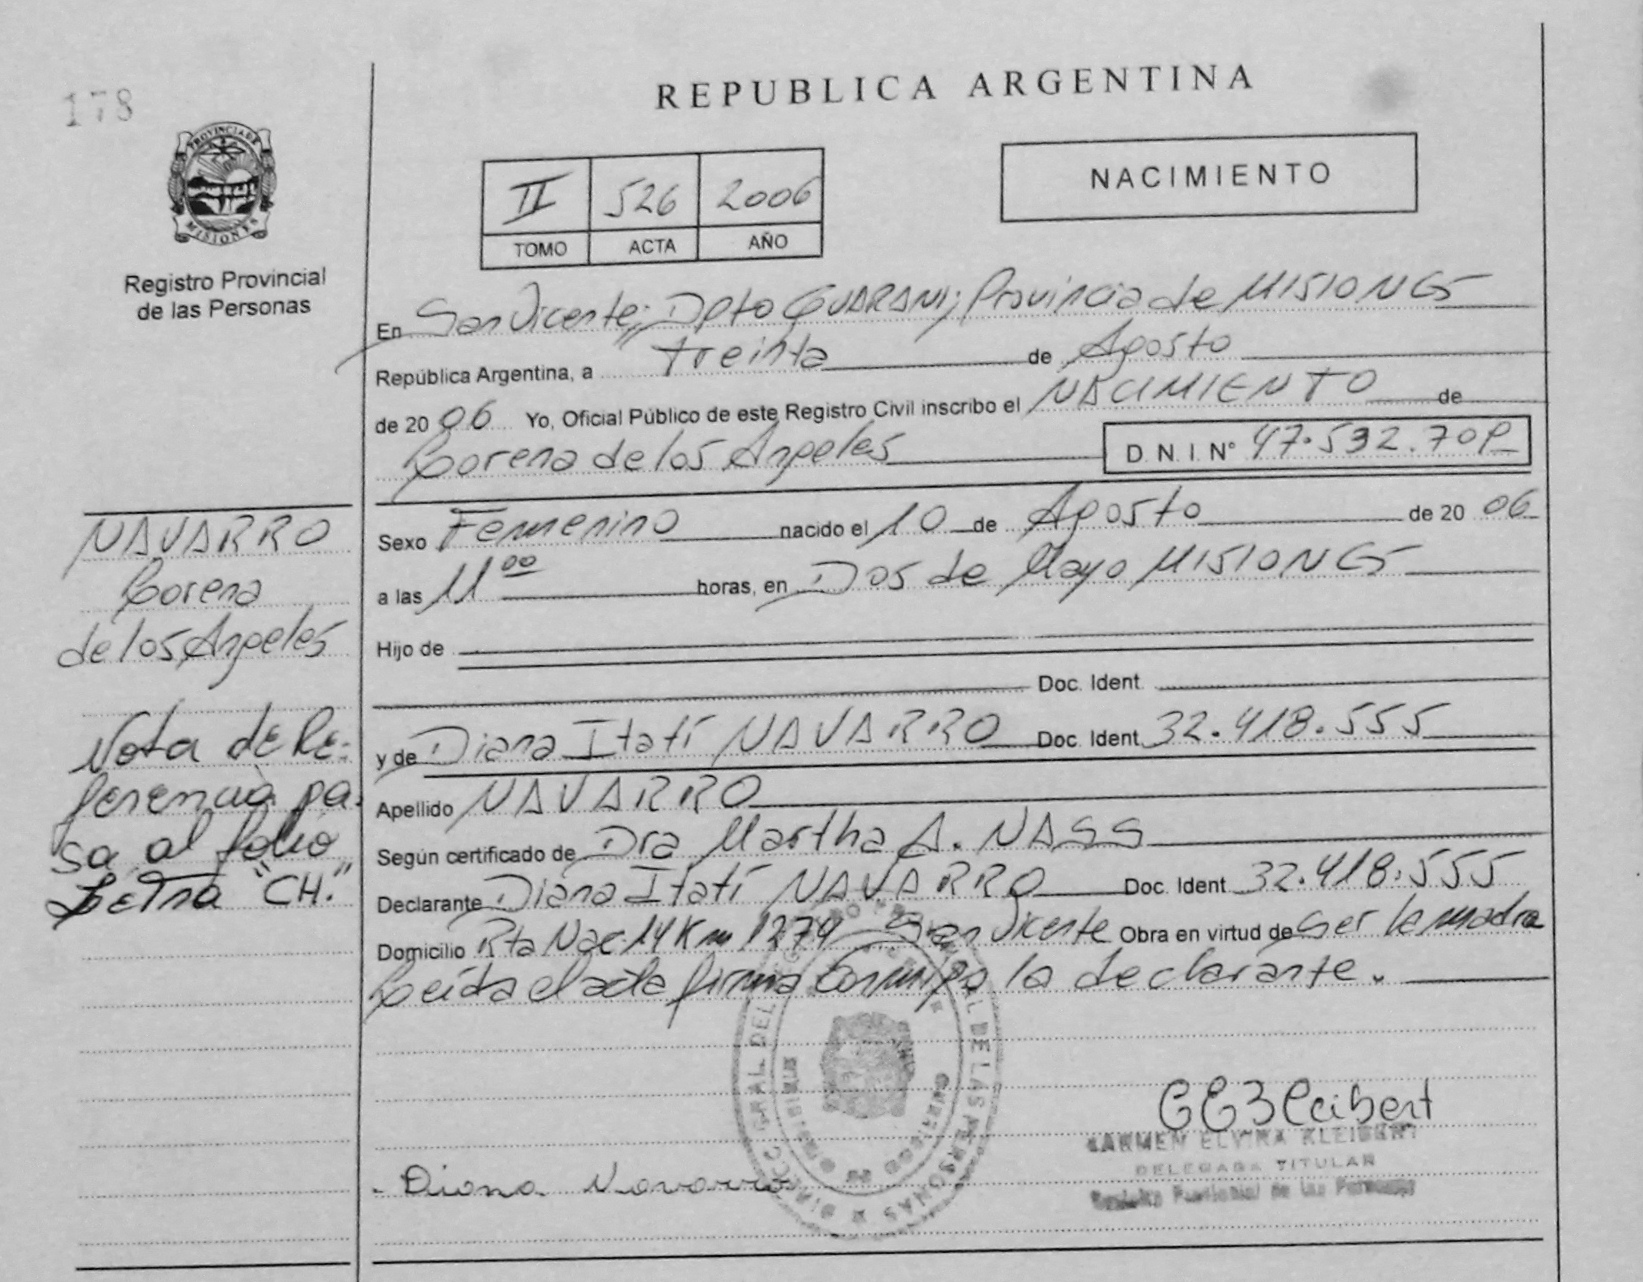 178
REPUBLICA ARGENTINA
PROVINCIA DE
MISIONES
Registro Provincial
de las Personas
II 526 2006
TOMO ACTA AÑO
NACIMIENTO
En San Vicente; Dpto GUARANI; Provincia de MISIONES
República Argentina, a treinta de Agosto
de 2006 Yo, Oficial Público de este Registro Civil inscribo el NACIMIENTO de
Lorena de los Angeles D. N. I. N° 47.532.709
Sexo Femenino nacido el 10 de Agosto de 2006
a las 11 00 horas, en Dos de Mayo MISIONES
Hijo de
Doc. Ident.
y de Diana Itatí NAVARRO Doc. Ident. 32.418.555
Apellido NAVARRO
Según certificado de Dra Martha A. NASS
Declarante Diana Itatí NAVARRO Doc. Ident. 32.418.555
Domicilio Rta Nac 14 Km 1279 San Vicente Obra en virtud de ser la madre
Leída el acta firma conmigo la declarante.
NAVARRO
Lorena
de los Angeles
Nota de Re-
ferencia pa-
sa al folio
Letra "CH."
Diana Navarro
CARMEN ELVIRA KLEIBERT
DELEGADA TITULAR
Registro Provincial de las Personas